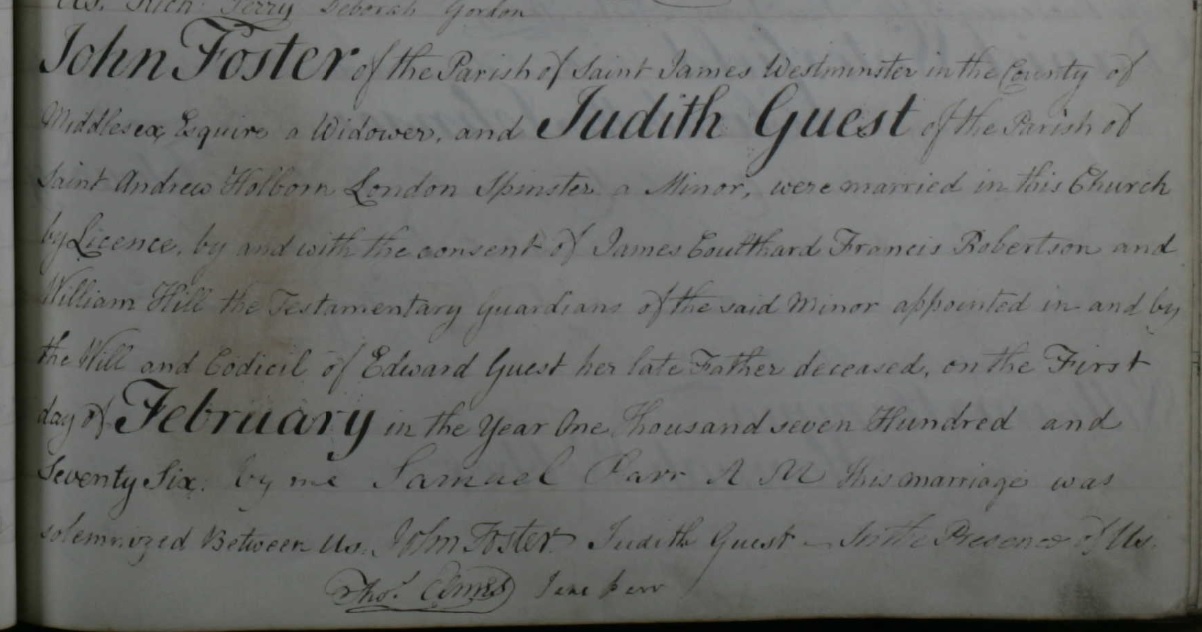 Us. Rich.d Terry Deborah Gordon
John Foster of the Parish of Saint James Westminster in the County of
Middlesex Esquire a Widower, and Judith Guest of the Parish of
Saint Andrew Holborn London Spinster a Minor, were married in this Church
by Licence, by and with the consent of James Coulthard Francis Robertson and
William Hill the Testamentary Guardians of the said Minor appointed in and by
the Will and Codicil of Edward Guest her late Father deceased, on the First
day of February in the Year One Thousand seven Hundred and
Seventy Six. by me Samuel Parr A M This marriage was
solemnized Between Us. John Foster Judith Guest – In the Presence of Us.
Thos. Jane Parr